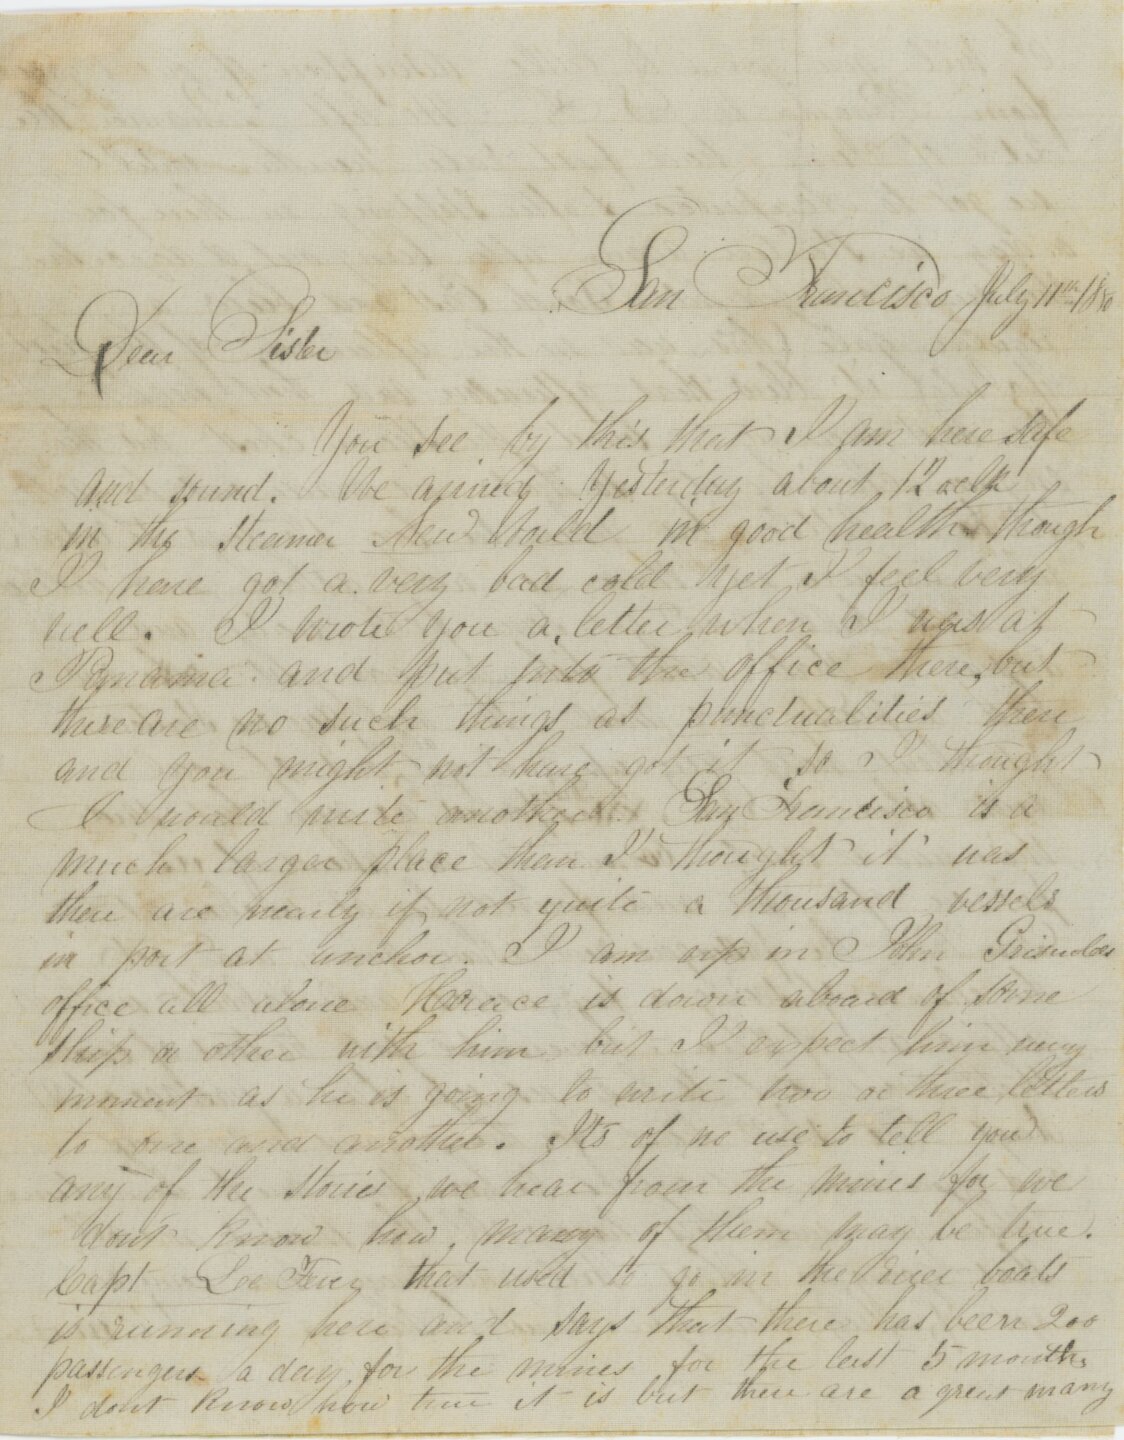 San Francisco July 11th 1850
Dear Sister
You see by this that I am here safe
and sound. We arrived Yesterday about 12 oclk
in the steamer New World in good health though
I have got a very bad cold yet I feel very
well. I wrote you a letter when I was at
Panama and put into the office there but
there are no such things as punctualities there
and you might not have got it so I thought
I would write another. San Francisco is a
much larger place than I thought it was
there are nearly if not quite a thousand vessels
in port at anchor. I am up in John Griswolds
office all alone Horace is down aboard of some
ship or other with him but I expect him every
moment as he is going to write two or three letters
to one and another. Its of no use to tell you
any of the stories we hear from the mines for we
dont know how many of them may be true.
Capt that used to go in the River boats
is running here and says that there has been 200
passengers a day for the mines for the last 5 months
I dont know how true it is but there are a great many